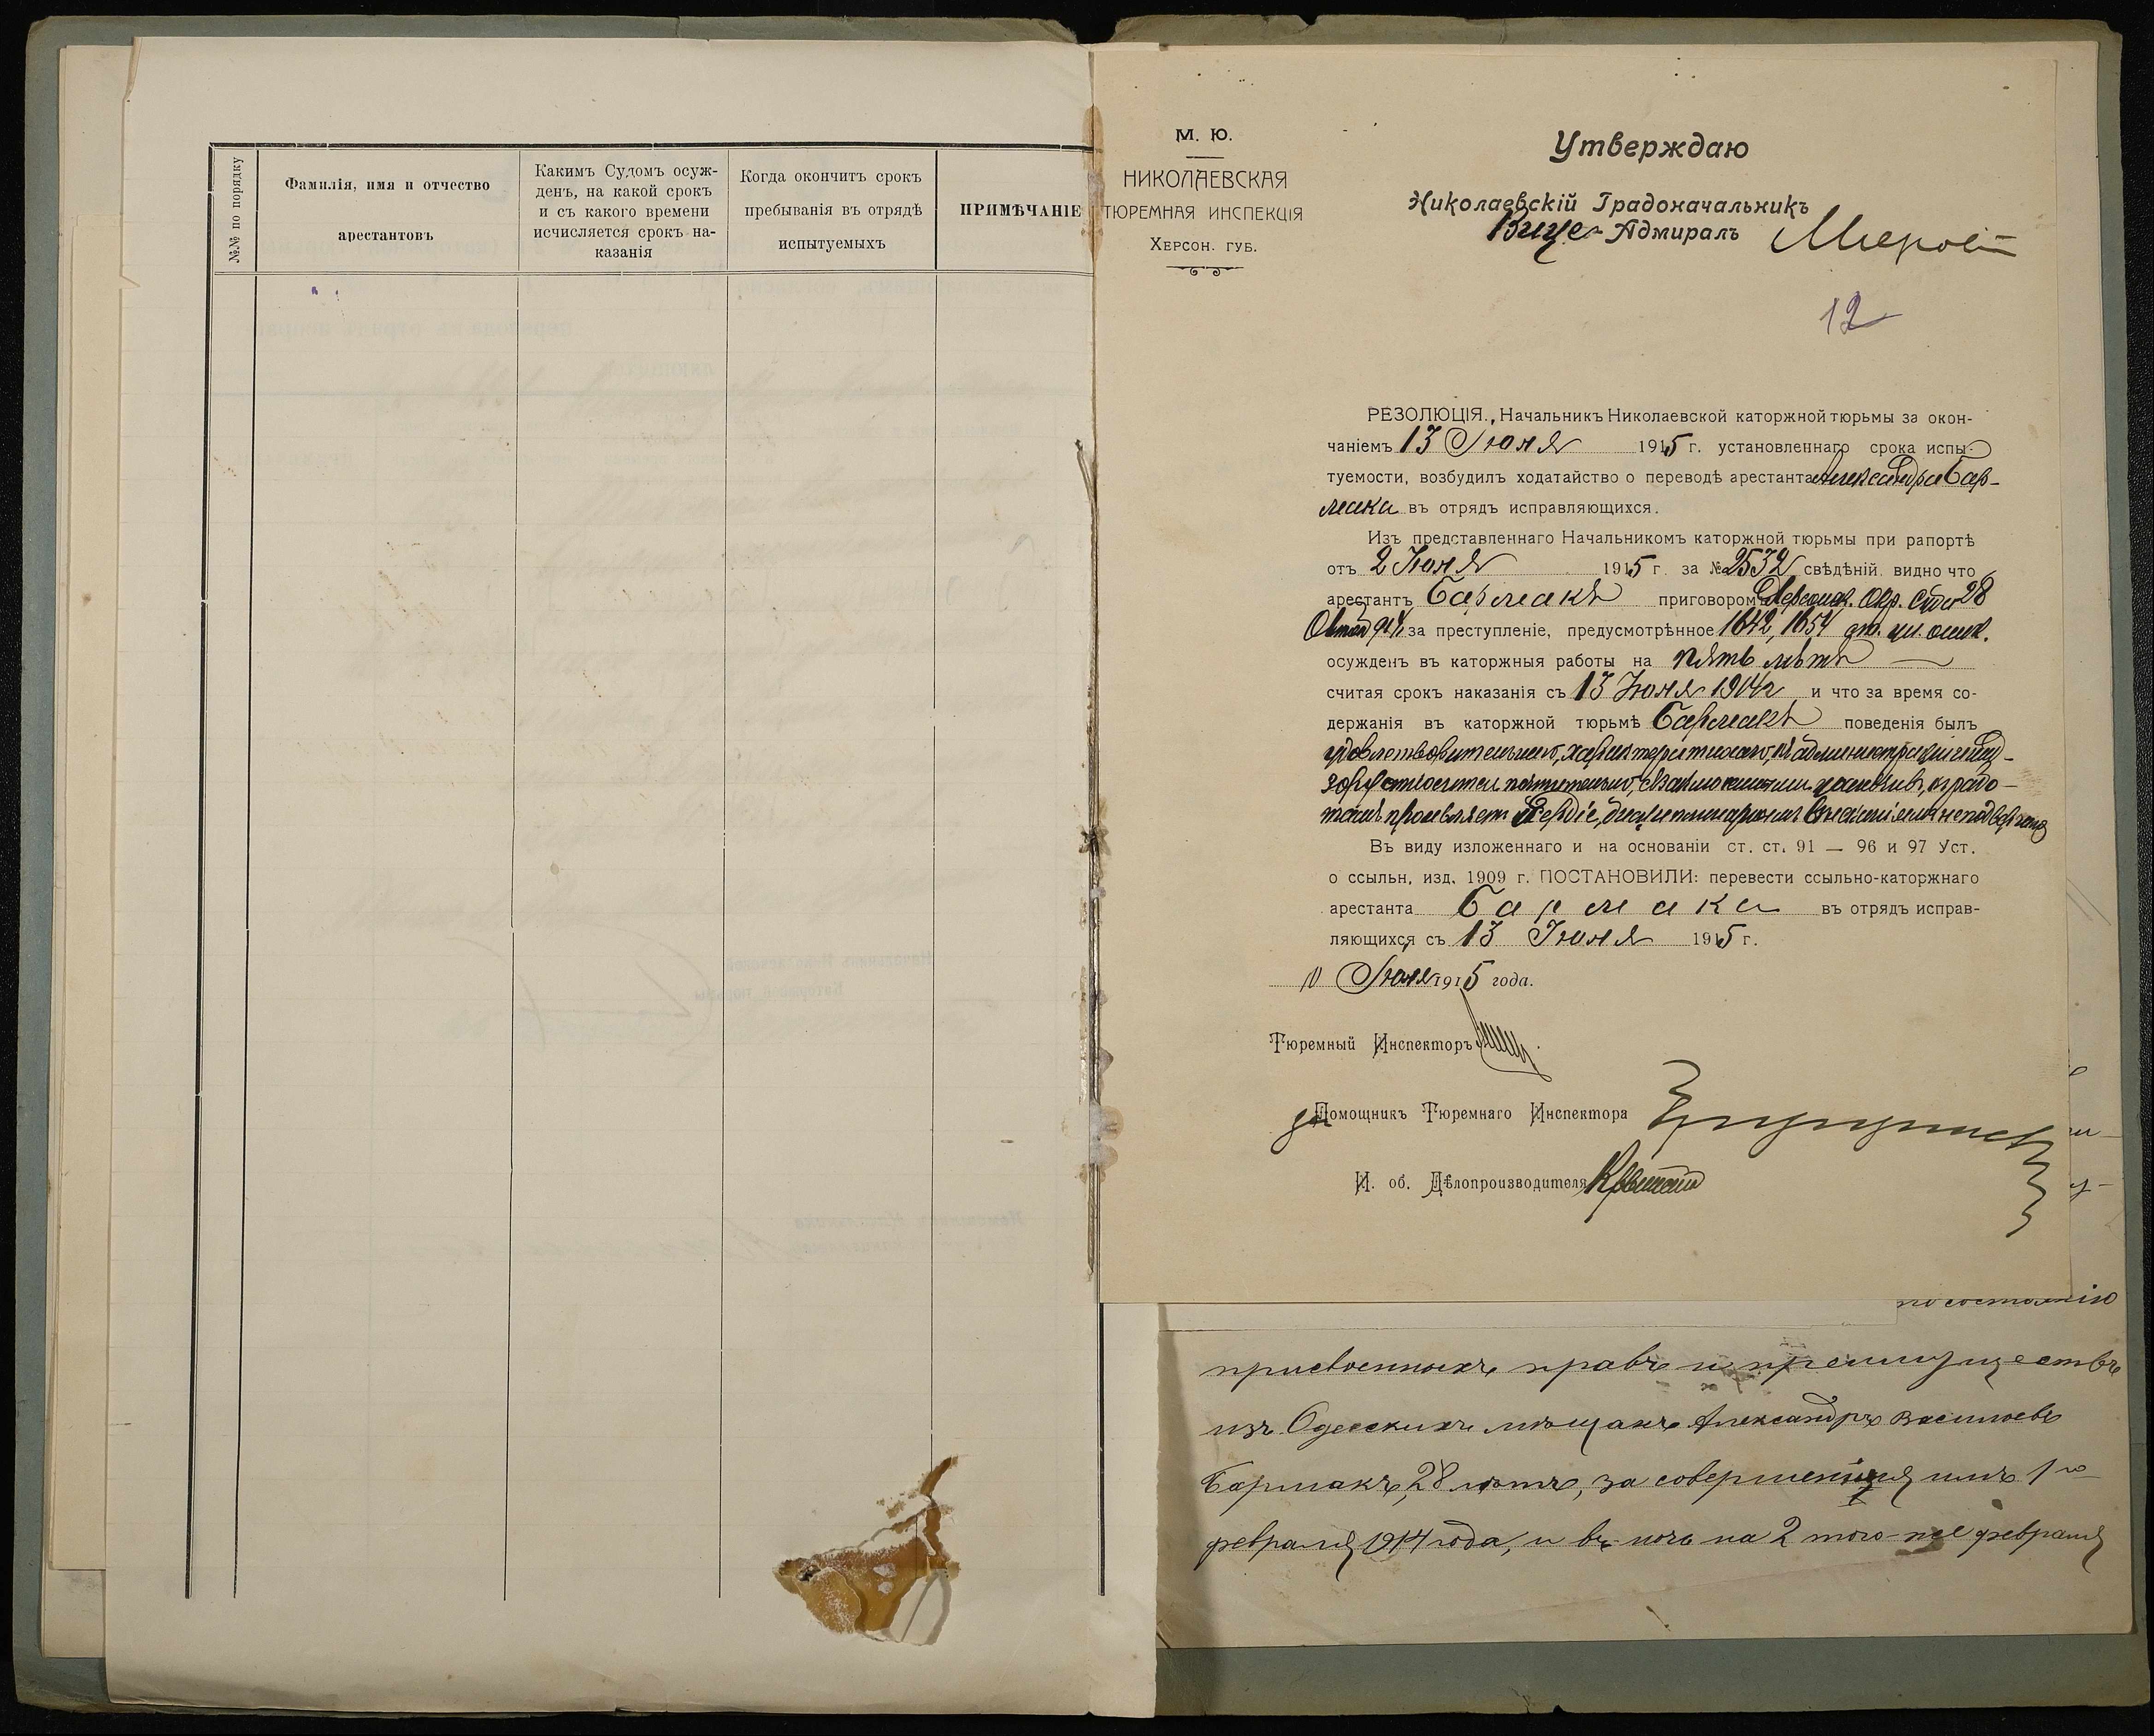 №№ по порядку
Фамилія, имя и отчество
арестантовъ
Какимъ Судомъ осуж-
денъ, на какой срокъ
и съ какого времени
исчисляется срокъ на-
казанія
Когда окончитъ срокъ
пребыванія въ отрядѣ
испытуемыхъ
ПРИМѢЧАНІЕ
М. Ю.
НИКОЛАЕВСКАЯ
ТЮРЕМНАЯ ИНСПЕКЦІЯ
ХЕРСОН. ГУБ.
Утверждаю
Николаевскій Градоначальникъ
Вице-Адмиралъ
12
РЕЗОЛЮЦІЯ., Начальникъ Николаевской каторжной тюрьмы за окон-
чаніемъ 13 Іюня 1915 г. установленнаго срока испы-
туемости, возбудилъ ходатайство о переводѣ арестанта Александра Бар-
мака въ отрядъ исправляющихся.
Изъ представленнаго Начальникомъ каторжной тюрьмы при рапортѣ
отъ 2 Іюня 1915 г. за № 2532 свѣдѣній видно что
арестантъ Бармакъ приговоромъ Херсонск. Окр. Суда 28
за преступленіе, предусмотрѣнное 1642, 1654
осужденъ въ каторжныя работы на пять лѣтъ
считая срокъ наказанія съ 13 Іюня 1914 г и что за время со-
держанія въ каторжной тюрьмѣ Бармакъ поведенія былъ
удовлетворительнаго, характера тихаго, къ администраціи и над-
зору относится почтительно, съ уживчивъ, къ рабо-
тамъ проявляетъ усердіе, дисциплинарнымъ взысканіямъ не подвергался
Въ виду изложеннаго и на основаніи ст. ст. 91 — 96 и 97 Уст.
о ссыльн, изд. 1909 г. ПОСТАНОВИЛИ: перевести ссыльно-каторжнаго
арестанта Бармака въ отрядъ исправ-
ляющихся съ 13 Іюня 1915 г.
10 Іюня 1915 года.
Тюремный Инспекторъ
за Помощникъ Тюремнаго Инспектора
И. об. Дѣлопроизводителя
по состоянію
присвоенныхъ правъ и преимуществъ
изъ Одесскихъ мѣщанъ Александръ Васильевъ
Бармакъ, 28 лѣтъ, за совершеніе имъ 1-го
февраля 1914 года, и въ ночь на 2 того-же февраля